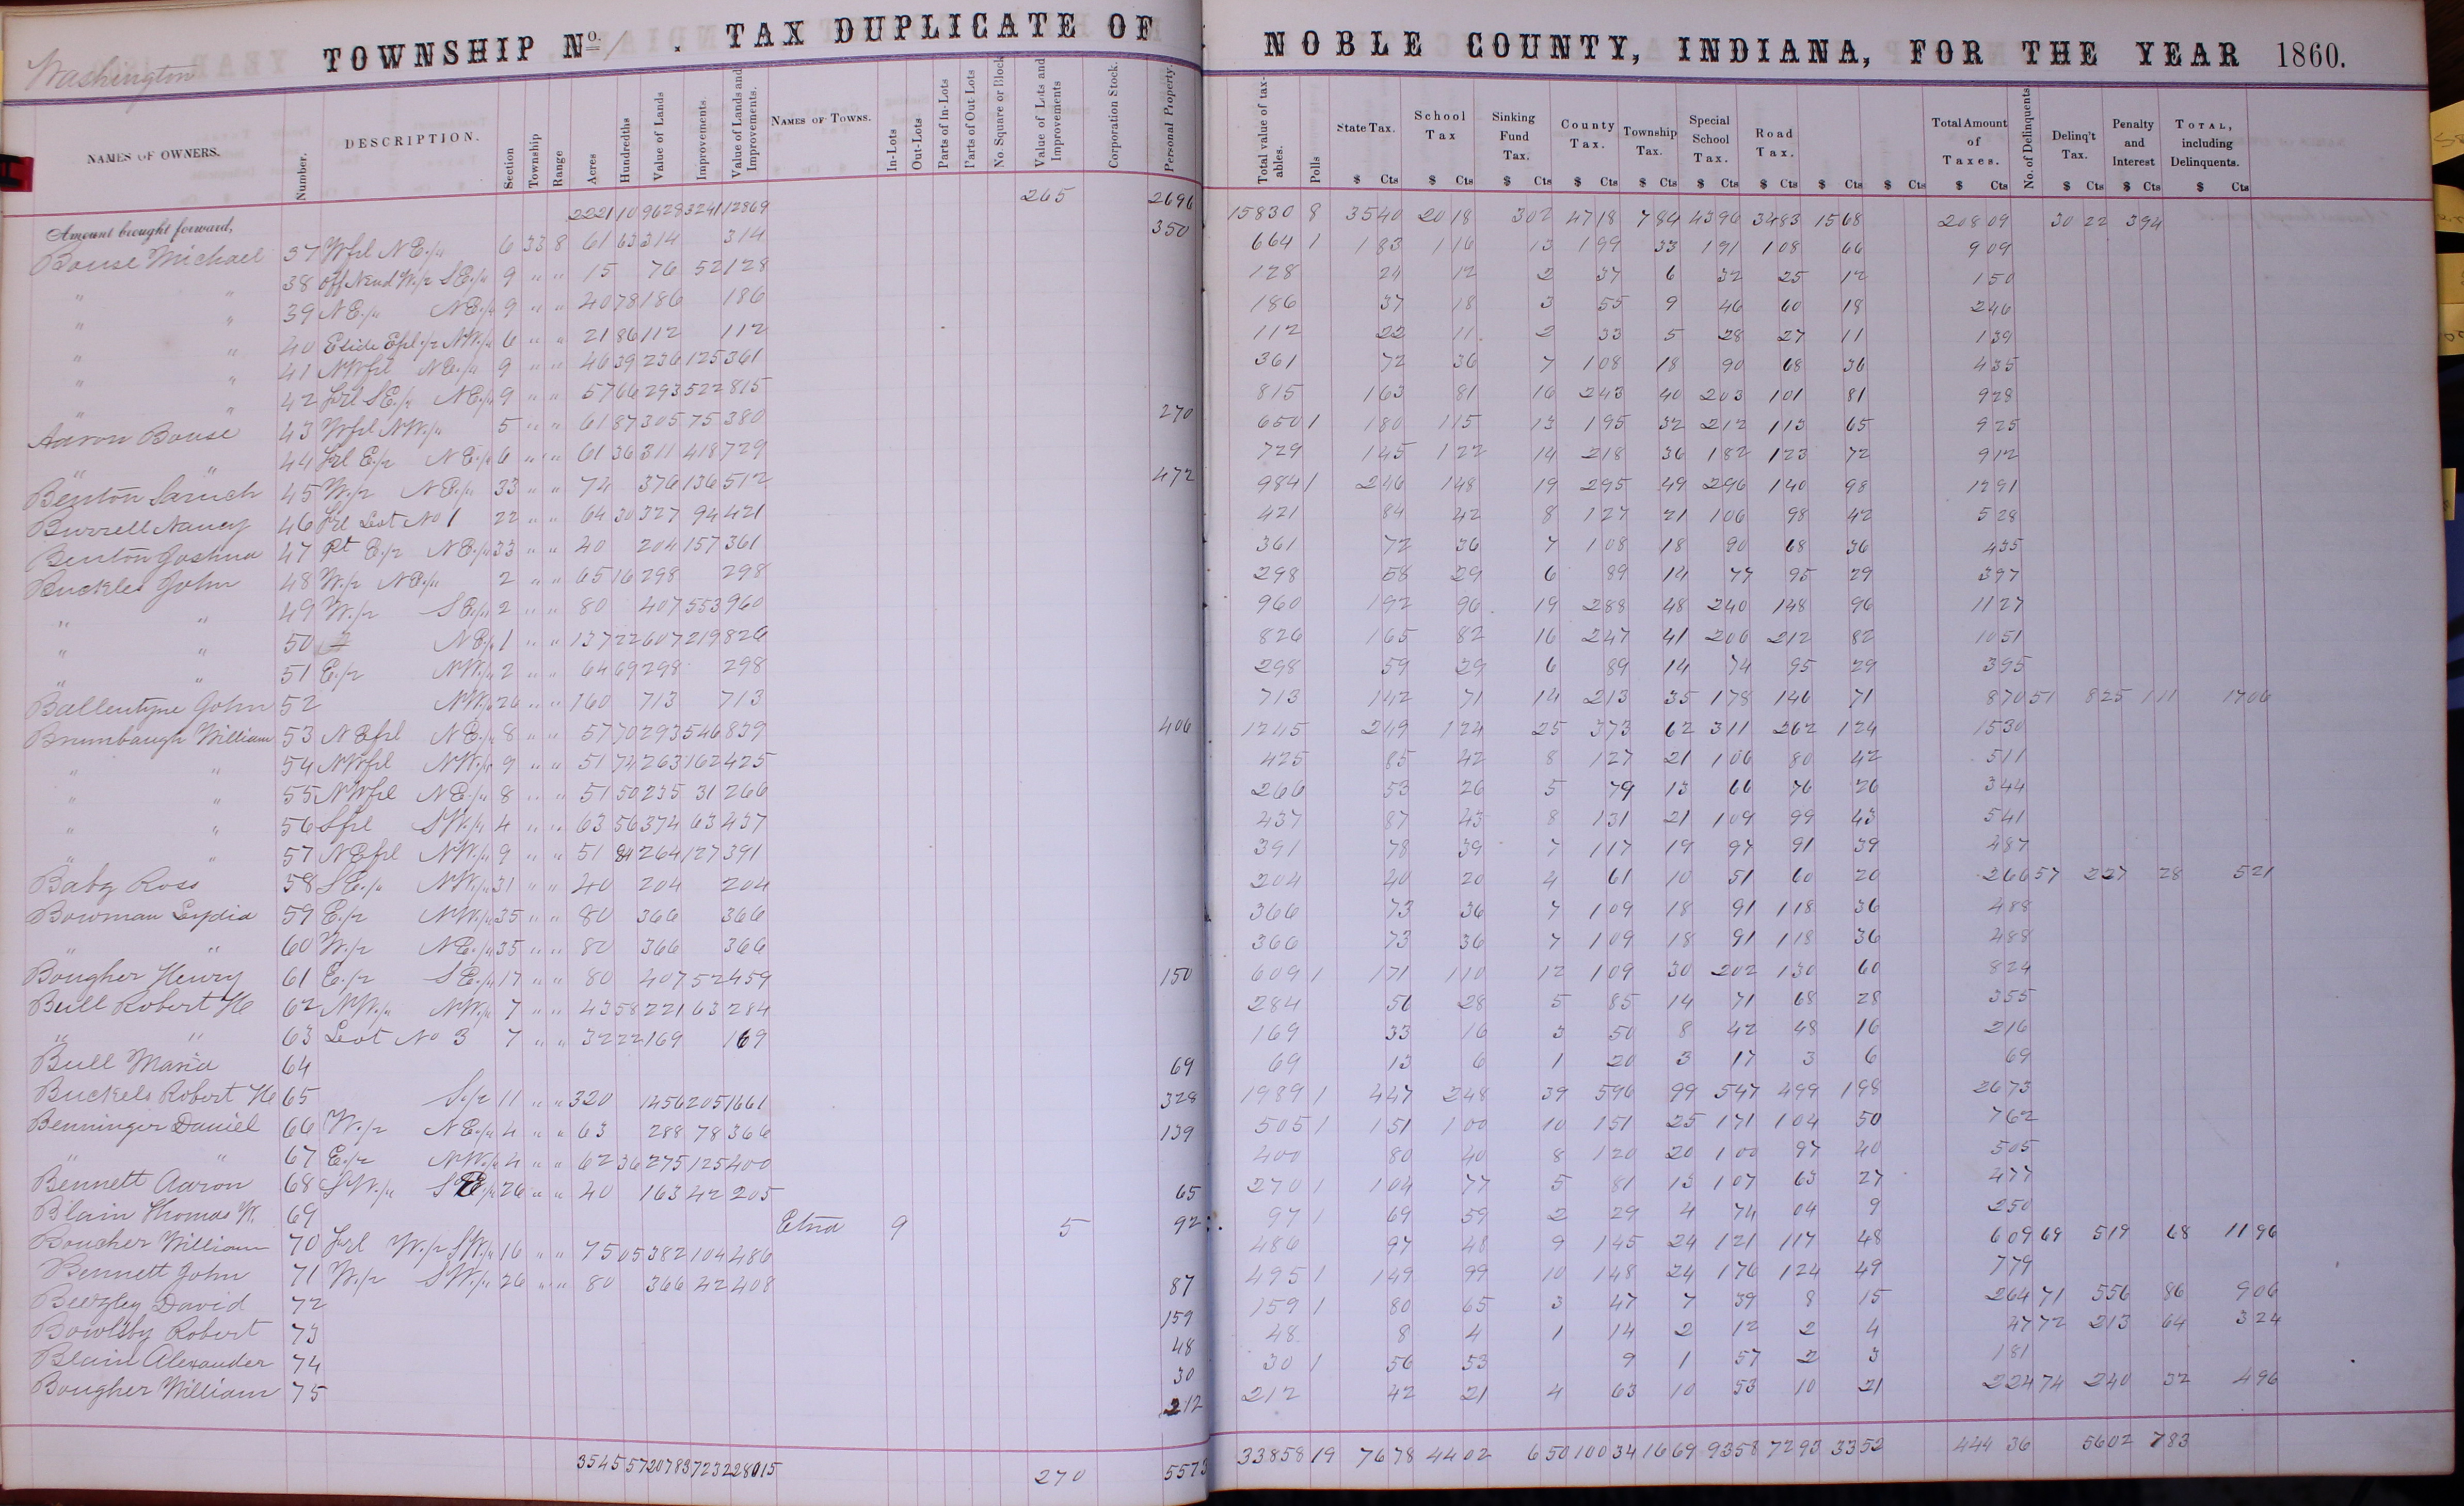 Washington TOWNSHIP No. 1. TAX DUPLICATE OF NOBLE COUNTY, INDIANA, FOR THE YEAR 1860.
NAMES OF OWNERS. Number. DESCRIPTION. Section Township Range Acres Hundredths Value of Lands Improvements. Value of Lands and Improvements. NAMES OF TOWNS. In-Lots Out-Lots Parts of In-Lots Parts of Out-Lots No Square or Block Value of Lots and Improvements Corporation Stock. Personal Property. Total value of taxables. Polls State Tax. School Tax Sinking Fund Tax. County Tax. Township Tax. Special School Tax. Road Tax. Total Amount of Taxes. No. of Delinquents. Delinq't Tax. Penalty and Interest TOTAL, including Delinquents.
$ Cts $ Cts $ Cts $ Cts $ Cts $ Cts $ Cts $ Cts $ Cts $ Cts $ Cts $ Cts $ Cts
Amount brought forward, 2221 10 9628 3241 12869 265 2696 15830 8 3540 2018 302 4718 784 4396 3483 1568 20809 3022 394
Bouse Michael 37 Wfrl NE/4 6 33 8 61 63 314 314 350 664 1 183 116 13 199 33 191 108 66 909
" " 38 off N end W/2 SE/4 9 " " 15 76 52 128 128 24 12 2 37 6 32 25 12 150
" " 39 NE/4 NE/4 9 " " 40 78 186 186 186 37 18 3 55 9 46 60 18 246
" " 40 E side Efrl/2 NW/4 6 " " 21 86 112 112 112 22 11 2 33 5 28 27 11 139
" " 41 NWfrl NE/4 9 " " 46 39 236 125 361 361 72 36 7 108 18 90 68 36 435
" " 42 frl SE/4 NE/4 9 " " 57 66 293 522 815 815 163 81 16 243 40 203 101 81 928
Aaron Bouse 43 Wfrl NW/4 5 " " 61 87 305 75 380 270 650 1 180 115 13 195 32 212 113 65 925
" " 44 frl E/2 NE/4 6 " " 61 36 311 418 729 729 145 122 14 218 36 182 123 72 912
Benton 45 W/2 NE/4 33 " " 74 376 136 512 472 984 1 246 148 19 295 49 296 140 98 1291
Burrell Nancy 46 frl Lot No 1 22 " " 64 30 327 94 421 421 84 42 8 127 21 106 98 42 528
Benton Joshua 47 Pt E/2 NE/4 33 " " 40 204 157 361 361 72 36 7 108 18 90 68 36 435
Buckles John 48 W/2 NE/4 2 " " 65 16 298 298 298 58 29 6 89 14 77 95 29 397
" " 49 W/2 SE/4 2 " " 80 407 553 960 960 192 96 19 288 48 240 148 96 1127
" " 50 NE/4 1 " " 137 22 607 219 826 826 165 82 16 247 41 206 212 82 1051
" " 51 E/2 NW/4 2 " " 64 69 298 298 298 59 29 6 89 14 74 95 29 395
Ballentyne John 52 NW/4 26 " " 160 713 713 713 142 71 14 213 35 178 146 71 870 51 825 111 1706
Brumbaugh William 53 NEfrl NE/4 8 " " 57 70 293 546 839 406 1245 249 124 25 373 62 311 262 124 1530
" " 54 NWfrl NW/4 9 " " 51 74 263 162 425 425 85 42 8 127 21 106 80 42 511
" " 55 NWfrl NE/4 8 " " 51 50 235 31 266 266 53 26 5 79 13 66 76 26 344
" " 56 Sfrl SW/4 4 " " 63 56 374 63 437 437 87 43 8 131 21 109 99 43 541
" " 57 NEfrl NW/4 9 " " 51 84 264 127 391 391 78 39 7 117 19 97 91 39 487
Baby Ross 58 SE/4 NW/4 31 " " 40 204 204 204 40 20 4 61 10 51 60 20 266 57 227 28 521
Bowman Lydia 59 E/2 NW/4 35 " " 80 366 366 366 73 36 7 109 18 91 118 36 488
" " 60 W/2 NE/4 35 " " 80 366 366 366 73 36 7 109 18 91 118 36 488
Bougher Henry 61 E/2 SE/4 17 " " 80 407 52 459 150 609 1 171 110 12 109 30 202 130 60 824
Bull Robert H 62 NW/4 NW/4 7 " " 43 58 221 63 284 284 56 28 5 85 14 71 68 28 355
" " 63 Lot No 3 7 " " 32 22 169 169 169 33 16 3 50 8 42 48 16 216
Bull Maria 64 69 69 13 6 1 20 3 17 3 6 69
Buckels Robert H 65 S/2 11 " " 320 1456 205 1661 328 1989 1 447 248 39 596 99 547 499 198 2673
Benninger Daniel 66 W/2 NE/4 4 " " 63 288 78 366 139 505 1 151 100 10 151 25 171 104 50 762
" " 67 E/2 NW/4 4 " " 62 36 275 125 400 400 80 40 8 120 20 100 97 40 505
Bennett Aaron 68 SW/4 SE/4 26 " " 40 163 42 205 65 270 1 104 77 5 81 13 107 63 27 477
Blain Thomas W. 69 Etna 9 5 92 97 1 69 59 2 29 4 74 04 9 250
Boucher William 70 frl W/2 SW/4 16 " " 75 05 382 104 486 486 97 48 9 145 24 121 117 48 609 69 519 68 1196
Bennett John 71 W/2 SW/4 26 " " 80 366 42 408 87 495 1 149 99 10 148 24 176 124 49 779
Beezley David 72 159 159 1 80 65 3 47 7 39 8 15 264 71 556 86 906
Bowlsby Robert 73 48 48 8 4 1 14 2 12 2 4 47 72 213 64 324
Blain Alexander 74 30 30 1 56 53 9 1 57 2 3 181
Bougher William 75 212 212 42 21 4 63 10 53 10 21 224 74 240 32 496
3545 57 20783 7232 28015 270 5573 33858 19 7678 4402 650 10034 1669 9358 7293 3352 444 36 5602 783